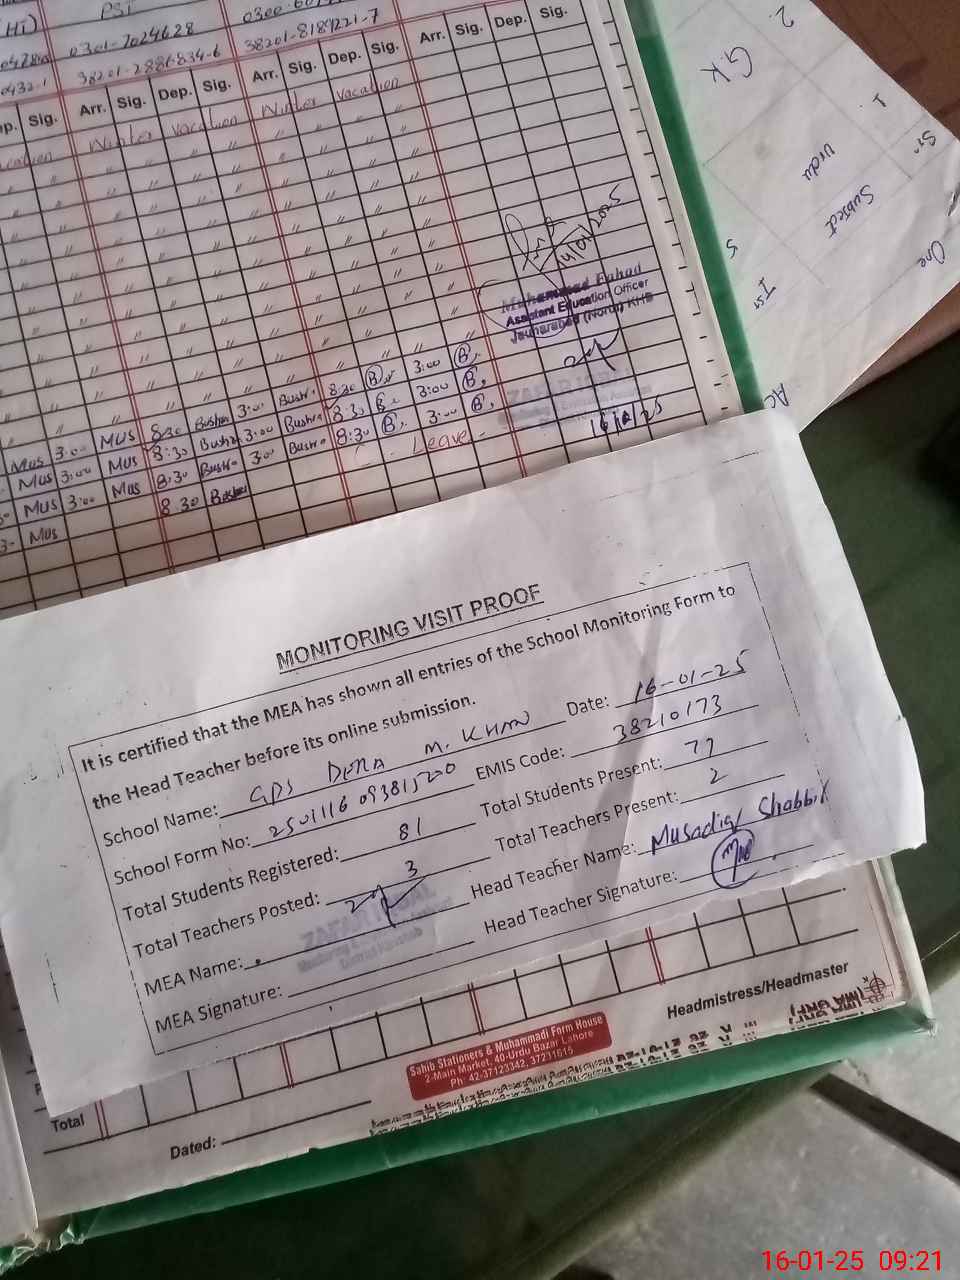 PST
0301-7024628
38201-2886834-6 38201-8189221-7
Arr. Sig. Dep. Sig. Arr. Sig. Dep. Sig. Arr. Sig. Dep. Sig.
Winter vacation Winter vacation
14/01/2025
Muhammad Fahad
Assistant Education Officer
Jauharabad (North) KHB
Mus 3:00 Mus 8:30 Bushra 3:00 Bushra 8:30 B 3:00 B
Mus 3:00 Mus 8:30 Bushra 3:00 Bushra 8:30 B 3:00 B
Mus 3:00 Mus 8:30 Bushra 3:00 Bushra 8:30 B 3:00 B
Mus 8:30 Bushra
C. Leave
ZAFAR IQBAL
2.
G.K
1.
Urdu
Sr
Subject
One
MONITORING VISIT PROOF
It is certified that the MEA has shown all entries of the School Monitoring Form to
the Head Teacher before its online submission.
School Name: GPS DERA M. KHAN Date: 16-01-25
School Form No: 250111609381520 EMIS Code: 38210173
Total Students Registered: 81 Total Students Present: 77
Total Teachers Posted: 3 Total Teachers Present: 2
MEA Name: Head Teacher Name: Musadiq Shabbir
MEA Signature: Head Teacher Signature:
ZAFAR IQBAL
Headmistress/Headmaster
Sahib Stationers & Muhammadi Form House
2-Main Market, 40-Urdu Bazar Lahore
Ph: 42-37123342, 37231615
Total
Dated:
16-01-25 09:21